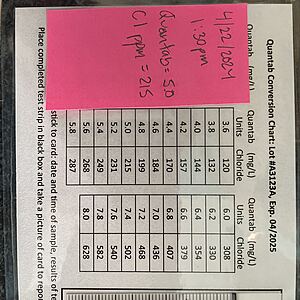 Quantab Conversion Chart: Lot #A3123A, Exp. 04/2025
4/22/2024
1:30pm
Quantab = 5.0
Cl ppm = 215
Quantab (mg/L)
Quantab (mg/L)
Units Chloride
3.6 120
3.8 132
4.0 144
4.2 157
4.4 170
4.6 184
4.8 199
5.0 215
5.2 231
5.4 249
5.6 268
5.8 287
Quantab (mg/L)
Units Chloride
6.0 308
6.2 330
6.4 354
6.6 379
6.8 407
7.0 436
7.2 468
7.4 502
7.6 540
7.8 582
8.0 628
stick to card: date and time of sample, results of te
Place completed test strip in black box and take a picture of card to repor